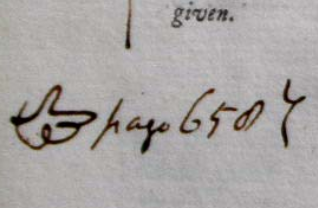 given.
☞ page 658